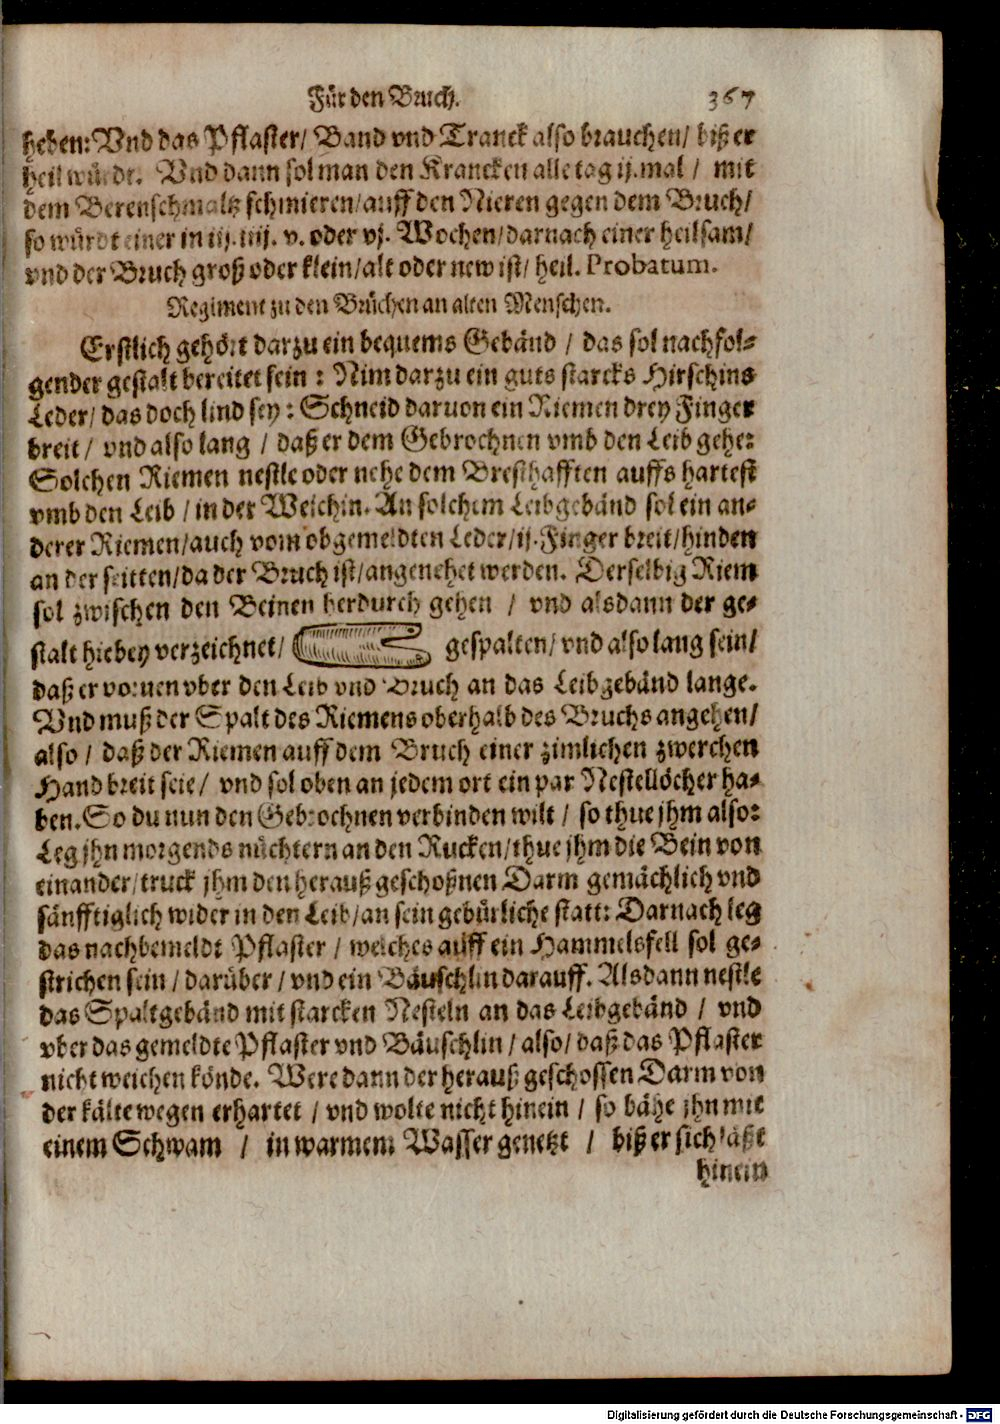 Für den Bruch. 367
heben: Vnd das Pflaster/ Band vnd Tranck also brauchen/ biß er
heil würdt. Vnd dann sol man den Krancken alle tag ij. mal / mit
dem Berenschmaltz schmieren/ auff den Nieren gegen dem Bruch/
so würdt einer in iij. iiij. v. oder vj. Wochen/ darnach einer heilsam/
vnd der Bruch groß oder klein/ alt oder new ist/ heil. Probatum.
Regiment zu den Brüchen an alten Menschen.
Erstlich gehört darzu ein bequems Gebänd / das sol nachfol-
gender gestalt bereitet sein: Nim darzu ein guts starcks Hirschins
Leder/ das doch lind sey: Schneid daruon ein Riemen drey Finger
breit / vnd also lang / daß er dem Gebrochnen vmb den Leib gehe:
Solchen Riemen nestle oder nehe dem Bresthafften auffs hartest
vmb den Leib / in der Weichin. An solchem Leibgebänd sol ein an-
derer Riemen/ auch vom obgemeldten Leder/ ij. Finger breit/ hinden
an der seitten/ da der Bruch ist/ angenehet werden. Derselbig Riem
sol zwischen den Beinen herdurch gehen / vnd alsdann der ge-
stalt hiebey verzeichnet/ gespalten/ vnd also lang sein/
daß er vornen vber den Leib vnd Bruch an das Leibgebänd lange.
Vnd muß der Spalt des Riemens oberhalb des Bruchs angehen/
also / daß der Riemen auff dem Bruch einer zimlichen zwerchen
Hand breit seie/ vnd sol oben an jedem ort ein par Nestellöcher ha-
ben. So du nun den Gebrochnen verbinden wilt / so thue jhm also:
Leg jhn morgends nüchtern an den Rucken/ thue jhm die Bein von
einander/ truck jhm den herauß geschoßnen Darm gemächlich vnd
sänfftiglich wider in den Leib/ an sein gebürliche statt: Darnach leg
das nachbemeldt Pflaster / welches auff ein Hammelsfell sol ge-
strichen sein / darüber / vnd ein Bäuschlin darauff. Alsdann nestle
das Spaltgebänd mit starcken Nesteln an das Leibgebänd / vnd
vber das gemeldte Pflaster vnd Bäuschlin / also/ daß das Pflaster
nicht weichen könde. Were dann der herauß geschossen Darm von
der kälte wegen erhartet / vnd wolte nicht hinein / so bähe jhn mit
einem Schwam / in warmem Wasser genetzt / biß er sich läßt
hinein
Digitalisierung gefördert durch die Deutsche Forschungsgemeinschaft - DFG